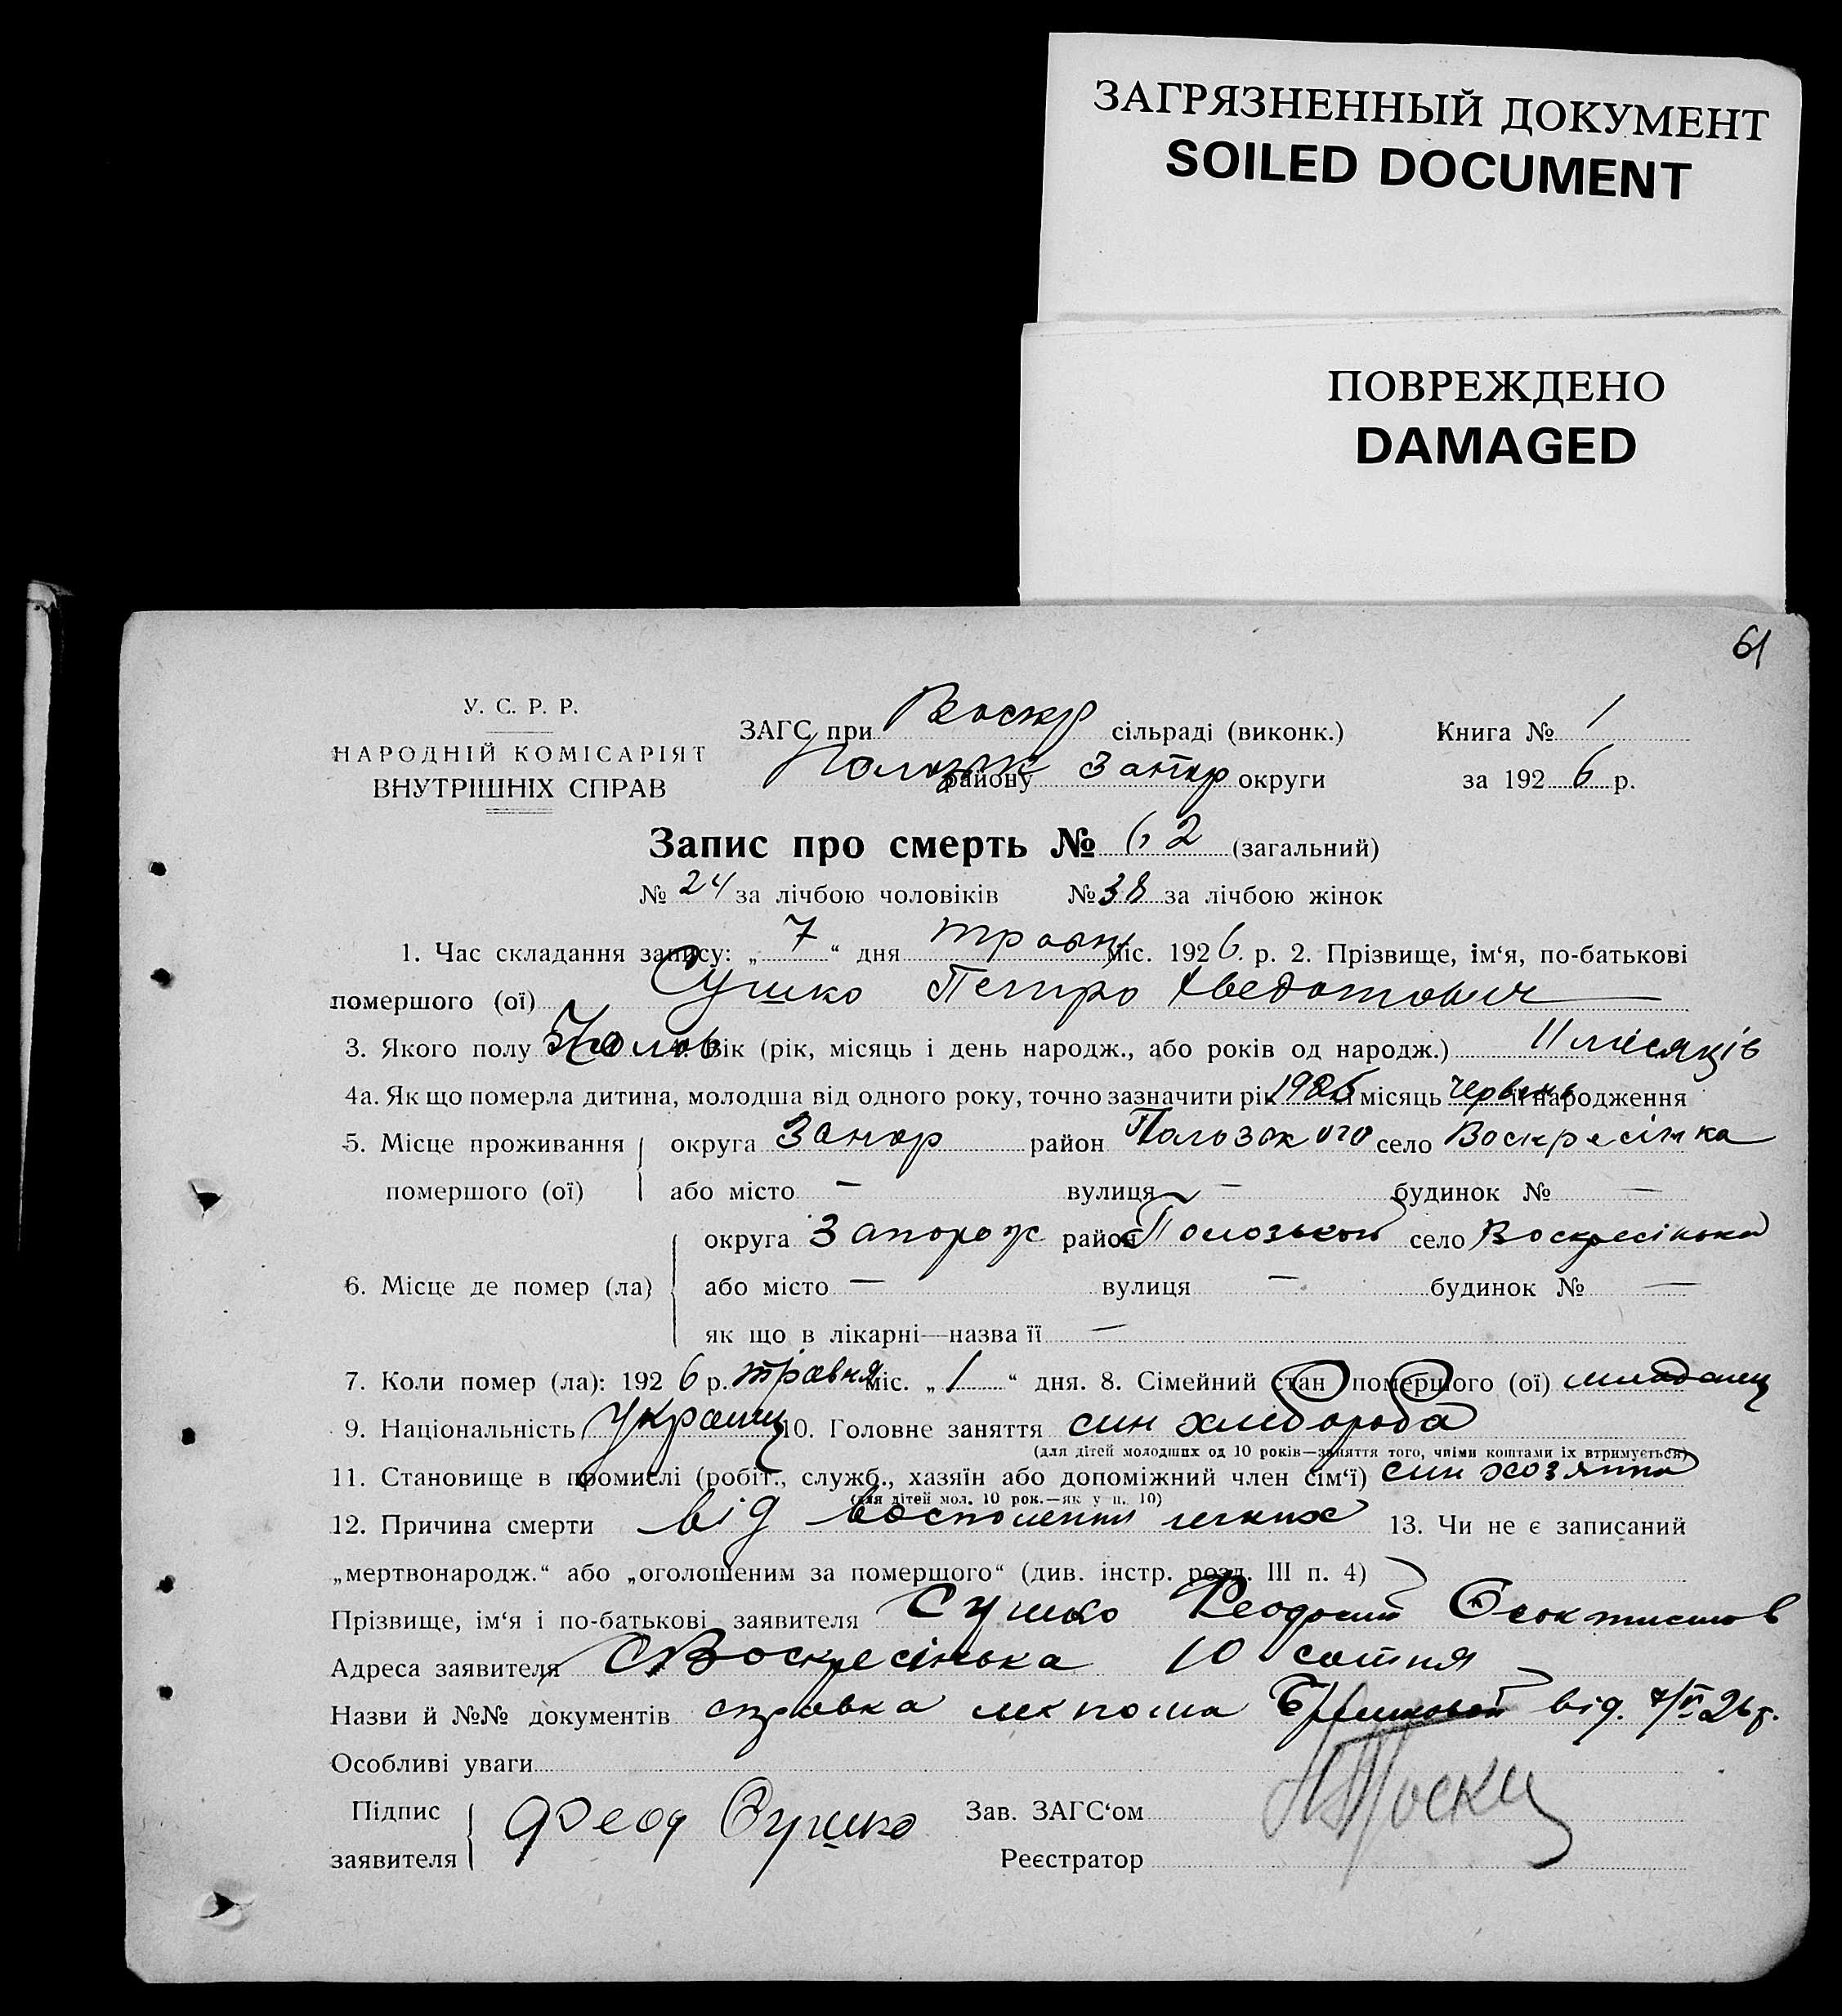 ЗАГРЯЗНЕННЫЙ ДОКУМЕНТ
SOILED DOCUMENT
ПОВРЕЖДЕНО
DAMAGED
61
У. С. Р. Р.
НАРОДНІЙ КОМІСАРІЯТ
ВНУТРІШНІХ СПРАВ
ЗАГС при Воскр сільраді (виконк.) Книга № 1
району Запор округи за 1926 р.
Запис про смерть № 62 (загальний)
№ 24 за лічбою чоловіків № 38 за лічбою жінок
1. Час складання запису: „ 7 “ дня травн міс. 1926 р. 2. Прізвище, ім‘я, по-батькові
помершого (ої) Сушко Петро
3. Якого полу 4. Вік (рік, місяць і день народж., або років од народж.) 11 місяців
4а. Як що померла дитина, молодша від одного року, точно зазначити рік 1925 місяць червень її народження
5. Місце проживання округа Запор район село Воскресінка
помершого (ої) або місто — вулиця — будинок № —
округа Запорож район село Воскресінька
6. Місце де помер (ла) або місто — вулиця — будинок № —
як що в лікарні—назва її —
7. Коли помер (ла): 1926 р. травня міс. „ 1 “ дня. 8. Сімейний стан помершого (ої)
9. Національність Украинц 10. Головне заняття син хлибороба
(для дітей молодших од 10 років—заняття того, чиїми коштами їх втримується)
11. Становище в промислі (робіт., служб., хазяїн або допоміжний член сім‘ї) син хозяина
(для дітей мол. 10 рок.—як у п. 10)
12. Причина смерти від воспаления легких 13. Чи не є записаний
„мертвонародж.“ або „оголошеним за помершого“ (див. інстр. розд. III п. 4)
Прізвище, ім‘я і по-батькові заявителя Сушко Феодосий
Адреса заявителя С Воскресінька 10 сотня
Назви й №№ документів справка лекпома від. 7/V 26 г.
Особливі уваги
Підпис
заявителя Феод Сушко Зав. ЗАГС‘ом
Реєстратор